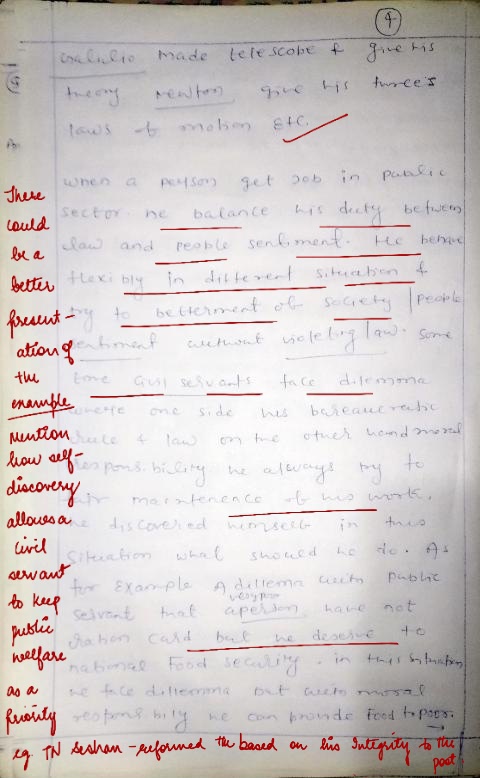 4
Galulio made telescope & give his
theory Newton give his three's
laws of motion etc.
when a person get Job in public
sector. he balance his duty between
law and people sentiment. He behave
flexibly in different situation &
try to betterment of society / people
sentiment without violeting law. some
time civil servants face dilemma
where one side his bureaucratic
rule & law on the other hand moral
responsibility he always try to
fair maintenence of his work.
he discovered himself in this
situation what should he do. As
for Example A dillema with public
very poor
servant that a person have not
ration card but he deserve to
national Food security. in this situation
he face dillemma but with moral
responsbily he can provide Food to poor.
There
could
be a
better
present-
ation of
the
example
mention
how self-
discovery
allows a
civil
servant
to keep
public
welfare
as a
priority
eg TN Seshan - reformed the based on his Integrity to the
post